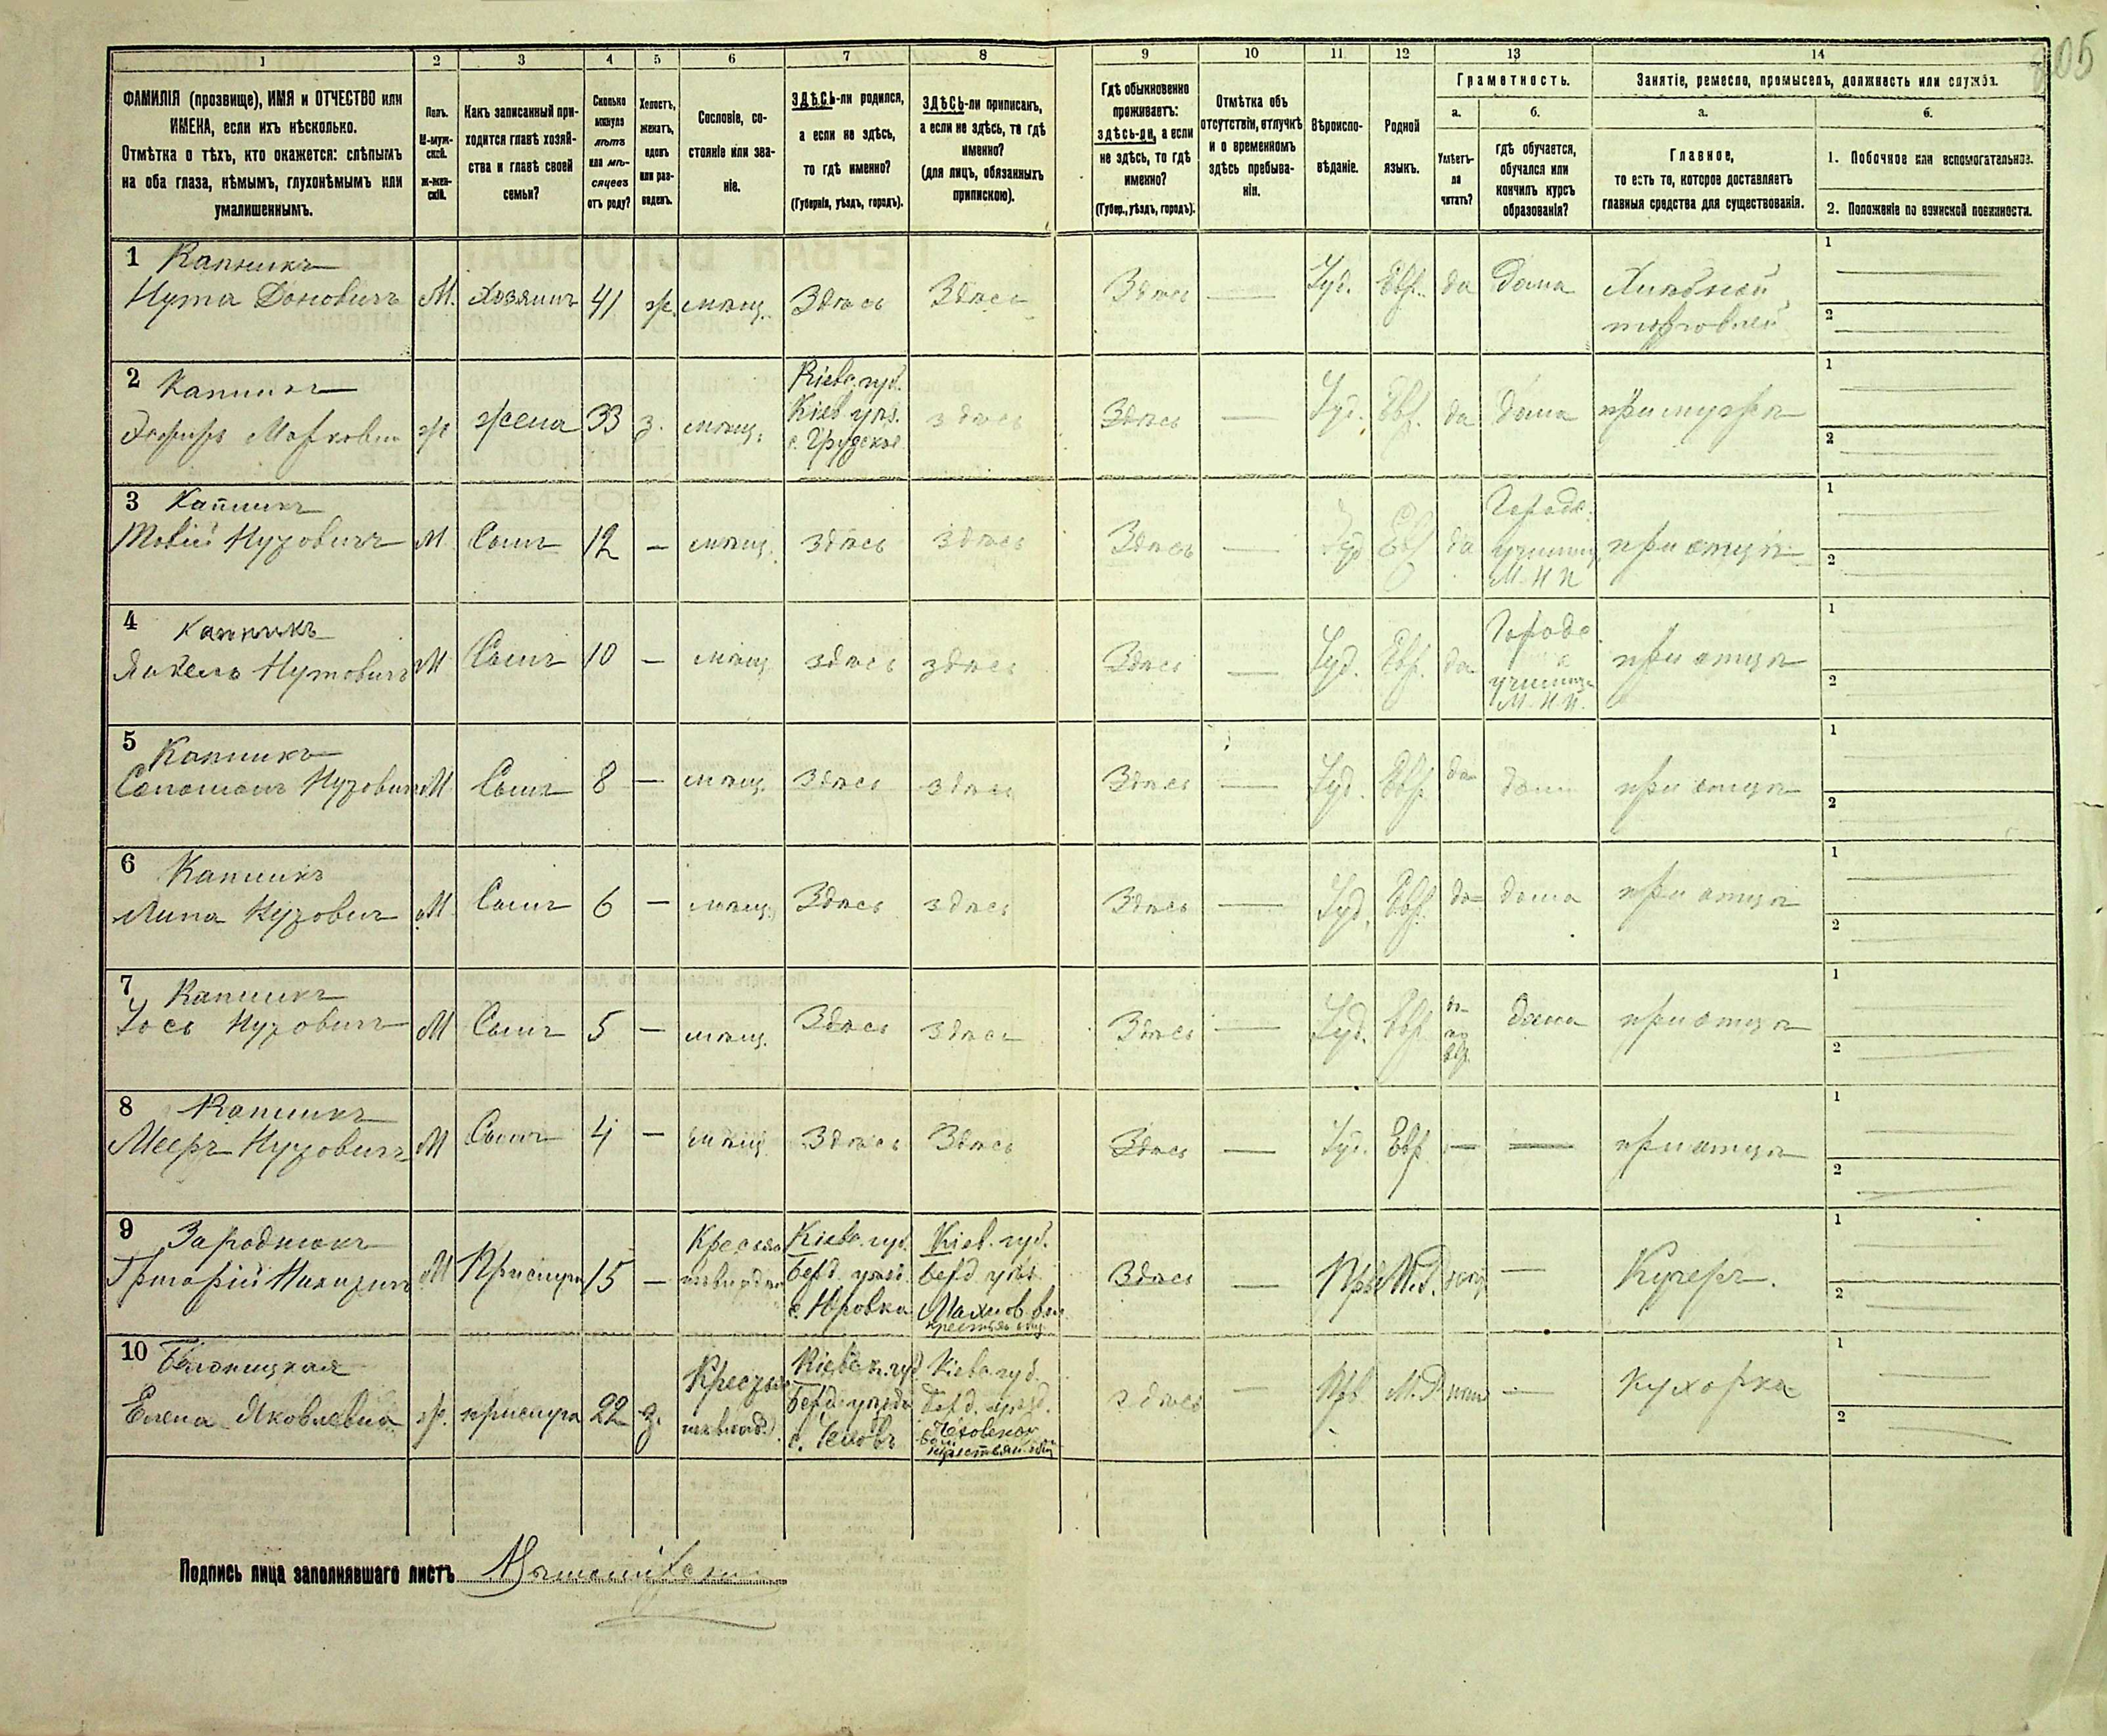 105
1 2 3 4 5 6 7 8 9 10 11 12 13 14
ФАМИЛІЯ (прозвище), ИМЯ и ОТЧЕСТВО или
ИМЕНА, если ихъ нѣсколько.
Отмѣтка о тѣхъ, кто окажется: слѣпымъ
на оба глаза, нѣмымъ, глухонѣмымъ или
умалишеннымъ.
Полъ.
М-муж-
ской.
Ж-жен-
скій.
Какъ записанный при-
ходится главѣ хозяй-
ства и главѣ своей
семьи?
Сколько
минуло
лѣтъ
или мѣ-
сяцевъ
отъ роду?
Холостъ,
женатъ,
вдовъ
или раз-
веденъ.
Сословіе, со-
стояніе или зва-
ніе.
ЗДѢСЬ-ли родился,
а если не здѣсь,
то гдѣ именно?
(Губернія, уѣздъ, городъ).
ЗДѢСЬ-ли приписанъ,
а если не здѣсь, то гдѣ
именно?
(для лицъ, обязанныхъ
припискою).
Гдѣ обыкновенно
проживаетъ:
здѣсь-ли, а если
не здѣсь, то гдѣ
именно?
(Губер., уѣздъ, городъ).
Отмѣтка объ
отсутствіи, отлучкѣ
и о временномъ
здѣсь пребыва-
ніи.
Вѣроиспо-
вѣданіе.
Родной
языкъ.
Грамотность.
а.
Умѣетъ-
ли
читать?
б.
гдѣ обучается,
обучался или
кончилъ курсъ
образованія?
Занятіе, ремесло, промыселъ, должность или служба.
а.
Главное,
то есть то, которое доставляетъ
главныя средства для существованія.
б.
1. Побочное или вспомогательное.
2. Положеніе по воинской повинности.
1 Капникъ
Нута Доновичъ М. Хозяинъ 41 ж. мѣщ. Здѣсь Здѣсь Здѣсь — Іуд. Евр. да дома Хлѣбной
торговлей
1
2
2 Капникъ
Марковна ж жена 33 з. мѣщ. Кіевс. губ.
Кіев. уѣз.
с. Грудское
здѣсь Здѣсь — Іуд. Евр. да дома при мужѣ
1
2
3 Капникъ
Товій Нутовичъ М Сынъ 12 — мѣщ. здѣсь здѣсь Здѣсь — Іуд Евр да Городс.
училищ
М. Н. П.
при отцѣ
1
2
4 Капникъ
Янкель Нутовичъ М Сынъ 10 — мѣщ здѣсь здѣсь Здѣсь — Іуд. Евр. да Городс.
училищѣ
М. Н. П.
при отцѣ
1
2
5 Капникъ
Соломонъ Нутовичъ М Сынъ 8 — мѣщ. Здѣсь здѣсь Здѣсь — Іуд. Евр да дома при отцѣ
1
2
6 Капникъ
Липа Нутовичъ М Сынъ 6 — мѣщ. Здѣсь здѣсь Здѣсь — Іуд. Евр. да дома при отцѣ
1
2
7 Капникъ
Іось Нутовичъ М Сынъ 5 — мѣщ. Здѣсь здѣсь Здѣсь — Іуд. Евр. да
по
евр.
дома при отцѣ
1
2
8 Капникъ
Мееръ Нутовичъ М Сынъ 4 — мѣщ. Здѣсь Здѣсь Здѣсь — Іуд. Евр — — при отцѣ
1
2
9 Зароднюкъ
Григорій М Прислуга 15 — Кресьян
Кіевс. губ.
Берд. уѣзд.
с. Юровка
Кіев. губ.
Берд уѣз.
Махнов. вол.
крестьян. общ.
Здѣсь — Прв М.Р. — Кучеръ.
1
2
10 Бѣлопицкая
Елена Яковлевна ж. прислуга 22 з. Крестьян
Кіевск. губ
Берд. уѣзда
с. Чеховъ
Кіевс губ.
Берд. уѣзд.
крестьян. общ
здѣсь — Прв. М.Р. — Кухарка
1
2
Подпись лица заполнявшаго листъ